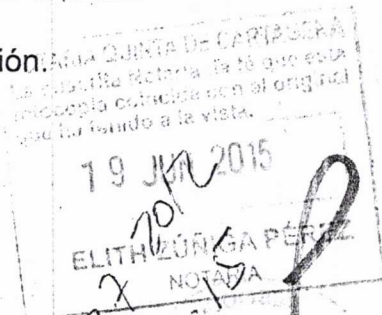 ión.
NOTARIA QUINTA DE CARTAGENA
La suscrita Notaria da fé que esta
fotocopia coincide con el original
que ha tenido a la vista.
19 JUN 2015
ELITH ZÚÑIGA PÉREZ
NOTARIA